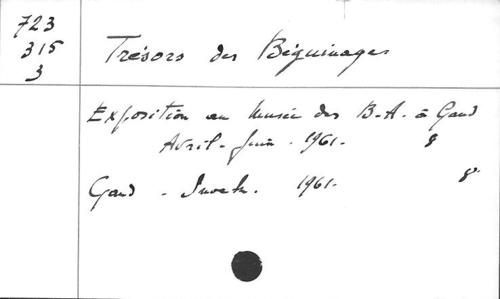 723
315
3
Trésors des Béguinages
Exposition au Musée des B-A. à Gand
Avril - Juin - 1961.
Gand - Snoeck. 1961. 8°